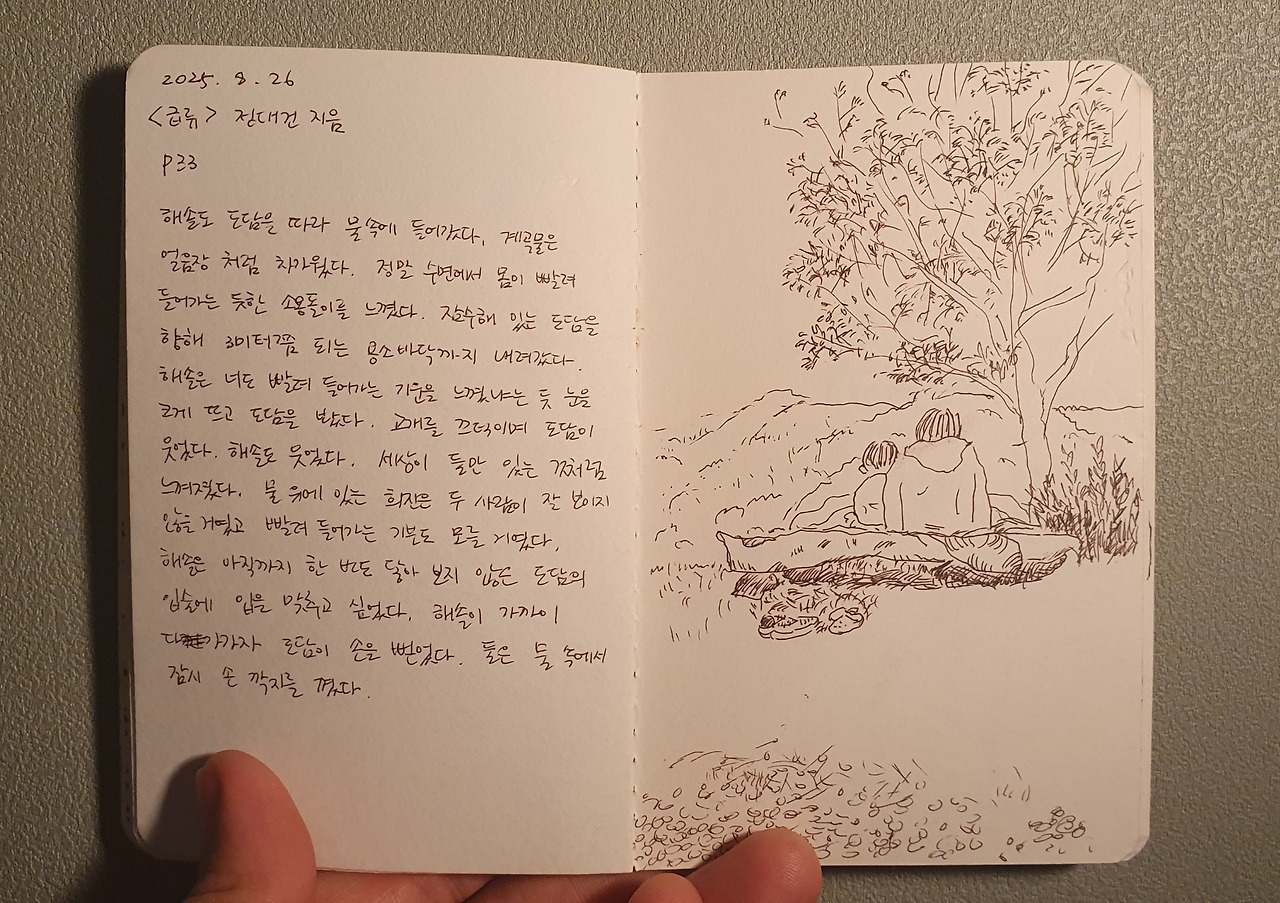 2025. 8. 26
<급류> 정대건 지음
P33
해솔도 도담을 따라 물속에 들어갔다. 계곡물은
얼음장 처럼 차가웠다. 정말 수면에서 몸이 빨려
들어가는 듯한 소용돌이를 느꼈다. 잠수해 있는 도담을
향해 3미터쯤 되는 용소바닥까지 내려갔다.
해솔은 너도 빨려 들어가는 기운을 느꼈냐는 듯 눈을
크게 뜨고 도담을 봤다. 고개를 끄덕이며 도담이
웃었다. 해솔도 웃었다. 세상이 둘만 있는 것처럼
느껴졌다. 물 위에 있는 희진은 두 사람이 잘 보이지
않을 거였고 빨려 들어가는 기분도 모를 거였다.
해솔은 아직까지 한 번도 닿아 보지 않은 도담의
입술에 입을 맞추고 싶었다. 해솔이 가까이
다가가자 도담이 손을 뻗었다. 둘은 물 속에서
잠시 손 깍지를 꼈다.